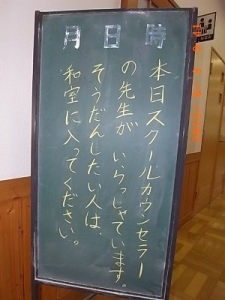 月 日 時
本日スクールカウンセラー
の先生が いらっしゃています。
そうだんしたい人は、
和室に入ってください。